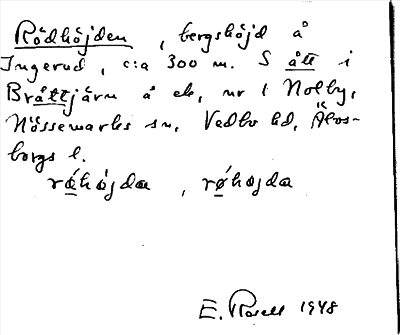 Rödhöjden, bergshöjd å
Ingerud, c:a 300 m. S ått i
Bråttjärn å ek, nr 1 Nolby,
Nössemarks sn, Vedbo hd, Älvs-
borgs l.
E. Rosell 1948